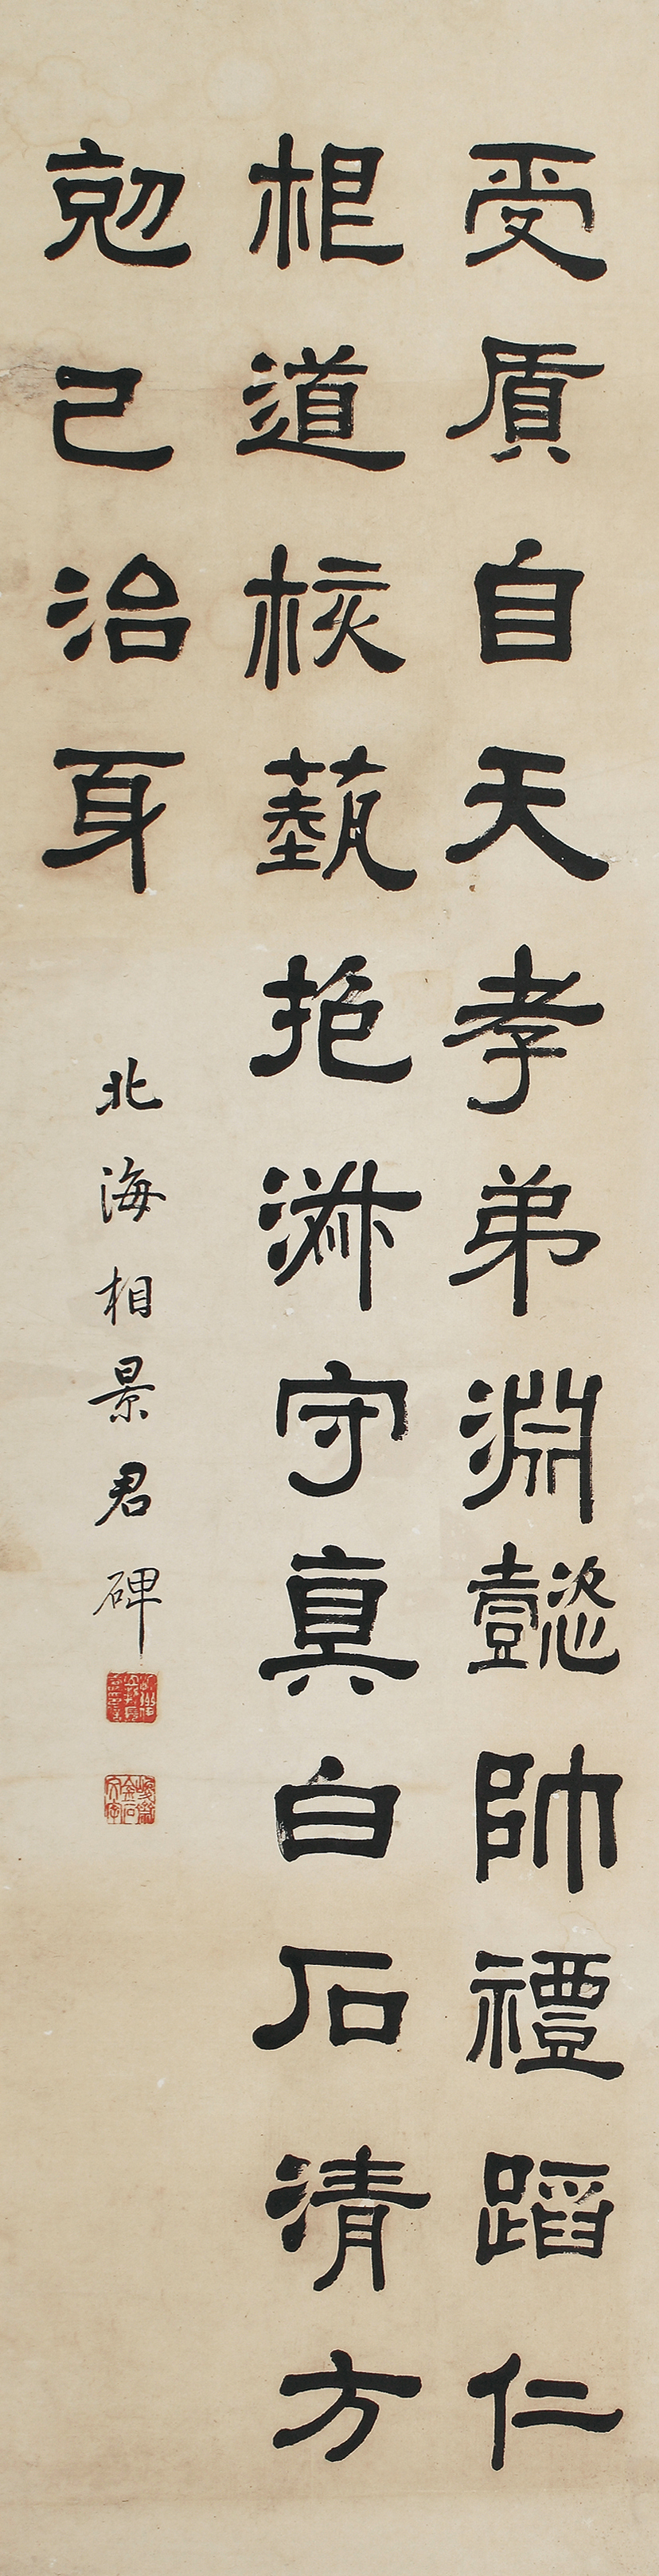 受質自天孝弟淵懿帥禮蹈仁
根道核藝抱淑守真白石清方
剋己治身
北海相景君碑